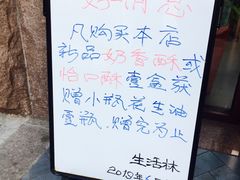 好消息
凡购买本店
新品奶香酥或
怡口酥壹盒获
赠小瓶花生油
壹瓶.赠完为止
生活林
2018年